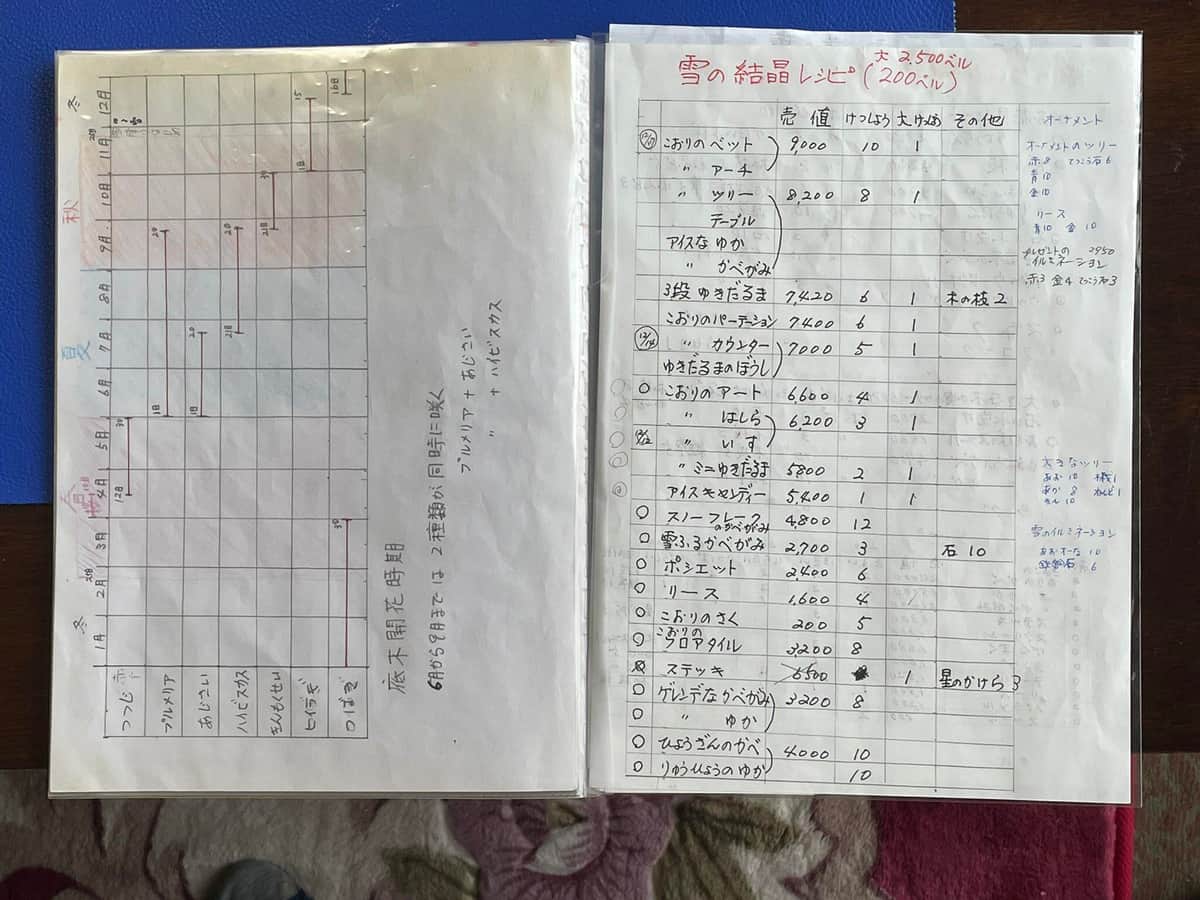 つつじ
プルメリア
あじさい
ハイビスカス
きんもくせい
ヒイラギ
つばき
冬
1月
2月
3月
4月
5月
夏
6月
7月
8月
秋
9月
10月
11月
12月
冬
12日 30
1日 20
1日 20
21日 20
21日 30
1日 15
16日
30
低木開花時期
6月から9月までは2種類が同時に咲く
プルメリア+あじさい
〃 +ハイビスカス
雪の結晶レシピ(大 2,500ベル
200ベル)
売値 けっしょう 大けっしょう その他
12/10 こおりのベット 9,000 10 1
〃 アーチ
〃 ツリー 8,200 8 1
テーブル
アイスなゆか
〃 かべがみ
3段ゆきだるま 7,420 6 1 木の枝2
こおりのパーテーション 7400 6 1
12/14 〃 カウンター 7000 5 1
ゆきだるまのぼうし
○ こおりのアート 6,600 4 1
〃 はしら 6,200 3 1
12/12 〃 いす
〃 ミニゆきだるま 5800 2 1
アイスキャンディー 5,400 1 1
○ スノーフレークのかべがみ 4,800 12
○ 雪ふるかべがみ 2,700 3 石10
○ ポシェット 2400 6
○ リース 1,600 4
○ こおりのさく 200 5
○ こおりのフロアタイル 3200 8
ステッキ 6500 1 星のかけら3
○ ゲレンデなかべがみ 3200 8
○ 〃 ゆか
○ ひょうざんのかべ 4.000 10
○ りゅうひょうのゆか 10
オーナメント
オーナメントのツリー
赤8 てっこう石6
青10
金10
リース
青10 金10
プレゼントの 2950
イルミネーション
赤3 金4 てっこう石3
大きなツリー
あお 10
あか 8
きん 10
雪のイルミネーション
あおオーナ 10
鉄鉱石 6